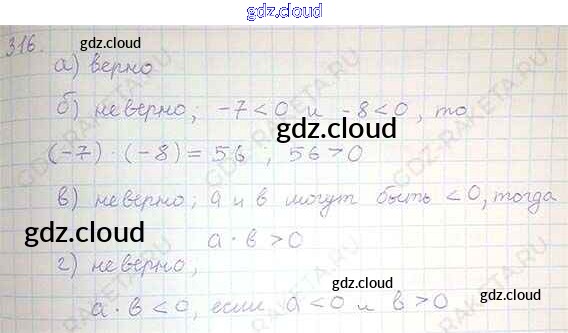 gdz.cloud
316. gdz.cloud
а) верно
б) неверно; -7<0 и -8<0, то
gdz.cloud
(-7)·(-8)=56, 56>0
в) неверно; а и в могут быть <0, тогда
gdz.cloud а·в>0
г) неверно,
gdz.cloud
а·в<0, если а<0 и в>0
gdz.cloud
GDZ-RAKETA.RU